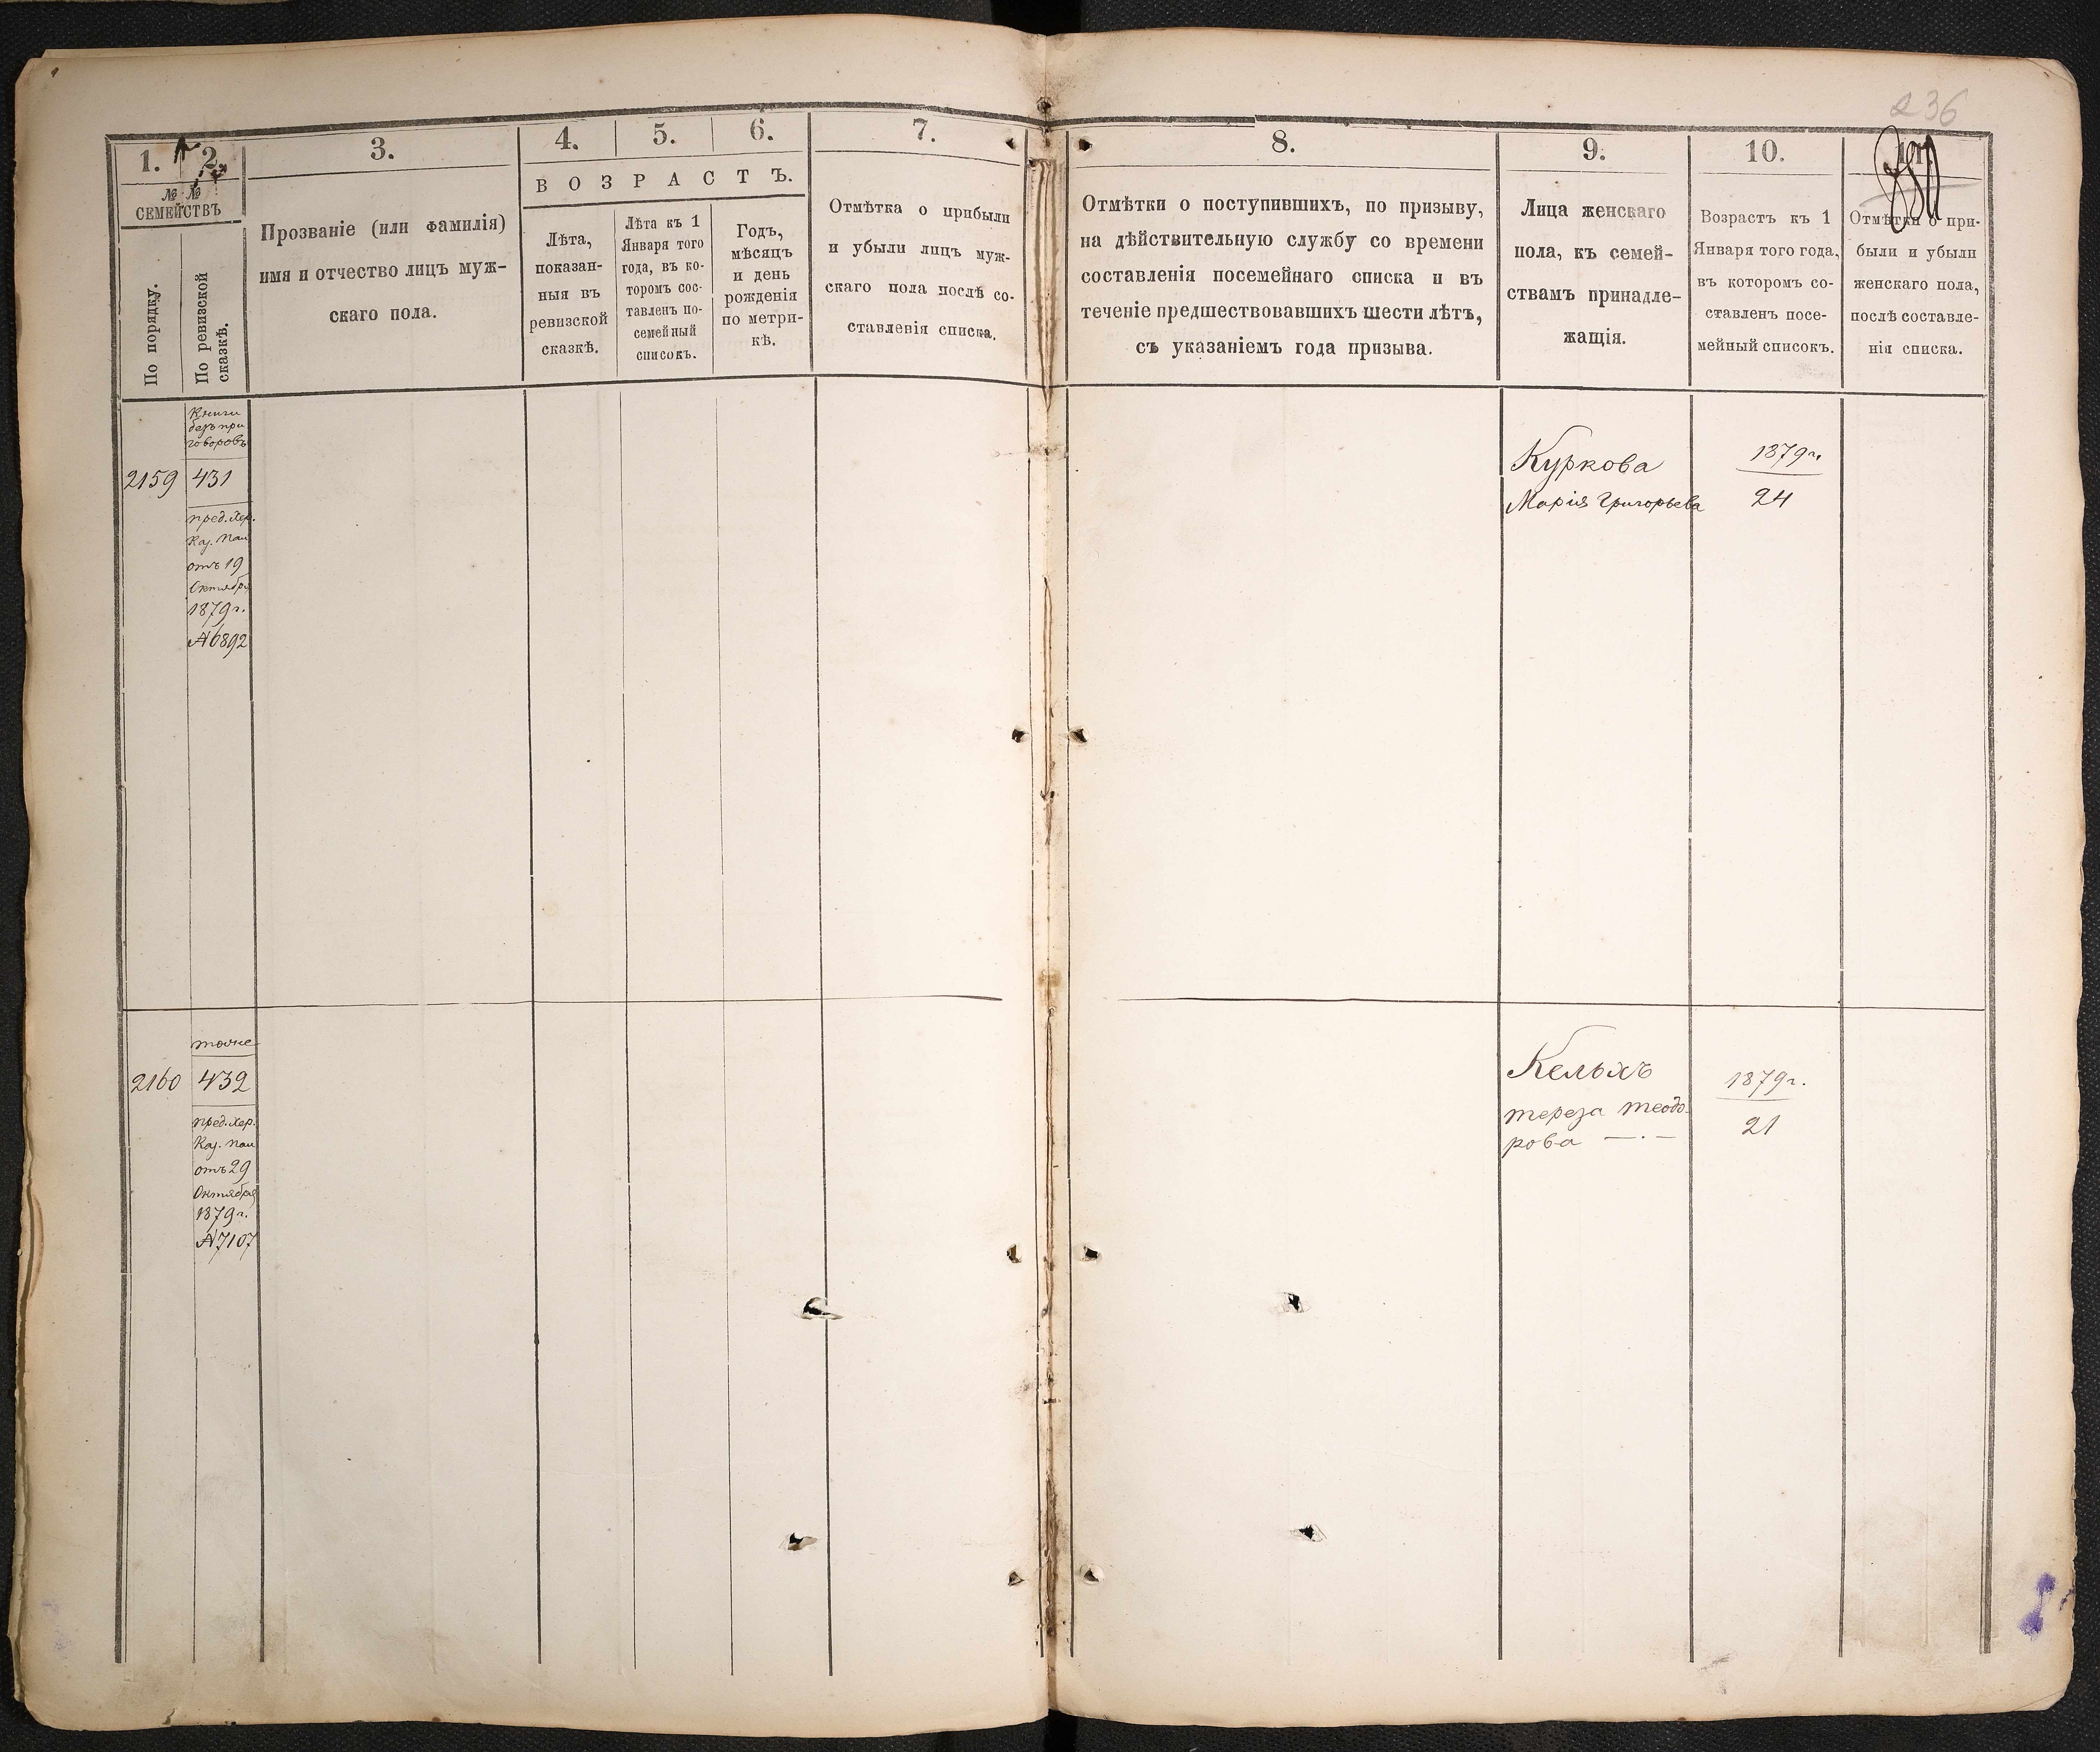 236
1.
2.
№ №
СЕМЕЙСТВЪ
По порядку.
По ревизской
сказкѣ.
3.
Прозваніе (или фамилія)
имя и отчество лицъ муж-
скаго пола.
4.
5.
6.
ВОЗРАСТЪ.
Лѣта,
показан-
ныя въ
ревизской
сказкѣ.
Лѣта къ 1
Января того
года, въ ко-
торомъ сос-
тавленъ по-
семейный
списокъ.
Годъ,
мѣсяцъ
и день
рожденія
по метри-
кѣ.
7.
Отмѣтка о прибыли
и убыли лицъ муж-
скаго пола послѣ со-
ставленія списка.
8.
Отмѣтки о поступившихъ, по призыву,
на дѣйствительную службу со времени
составленія посемейнаго списка и въ
теченіе предшествовавшихъ шести лѣтъ,
съ указаніемъ года призыва.
9.
Лица женскаго
пола, къ семей-
ствамъ принадле-
жащія.
10.
Возрастъ къ 1
Января того года,
въ которомъ со-
ставленъ посе-
мейный списокъ.
11.
Отмѣтки о при-
были и убыли
женскаго пола,
послѣ составле-
нія списка.
Книги
безъ при
говоровъ
2159
431
пред. Хер.
Каз. Пал
отъ 19
Октября
1879 г.
№6892
Куркова
Марія Григорьева
1879 г.
24
тоже
2160
432
пред. Хер.
Каз. Пал
отъ 29
Октября
1879 г.
№7107
Кельхъ
Тереза Теодо-
рова
1879 г.
21